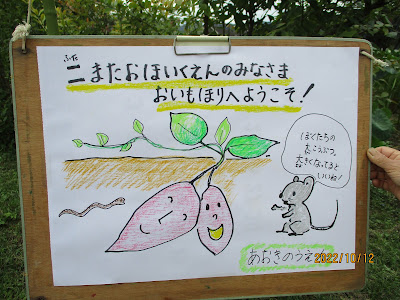 ふた
二またおほいくえんのみなさま
おいもほりへようこそ!
ぼくたちの
大こうぶつ、
大きくなってると
いいね!
あおきのうえん
2022/10/12